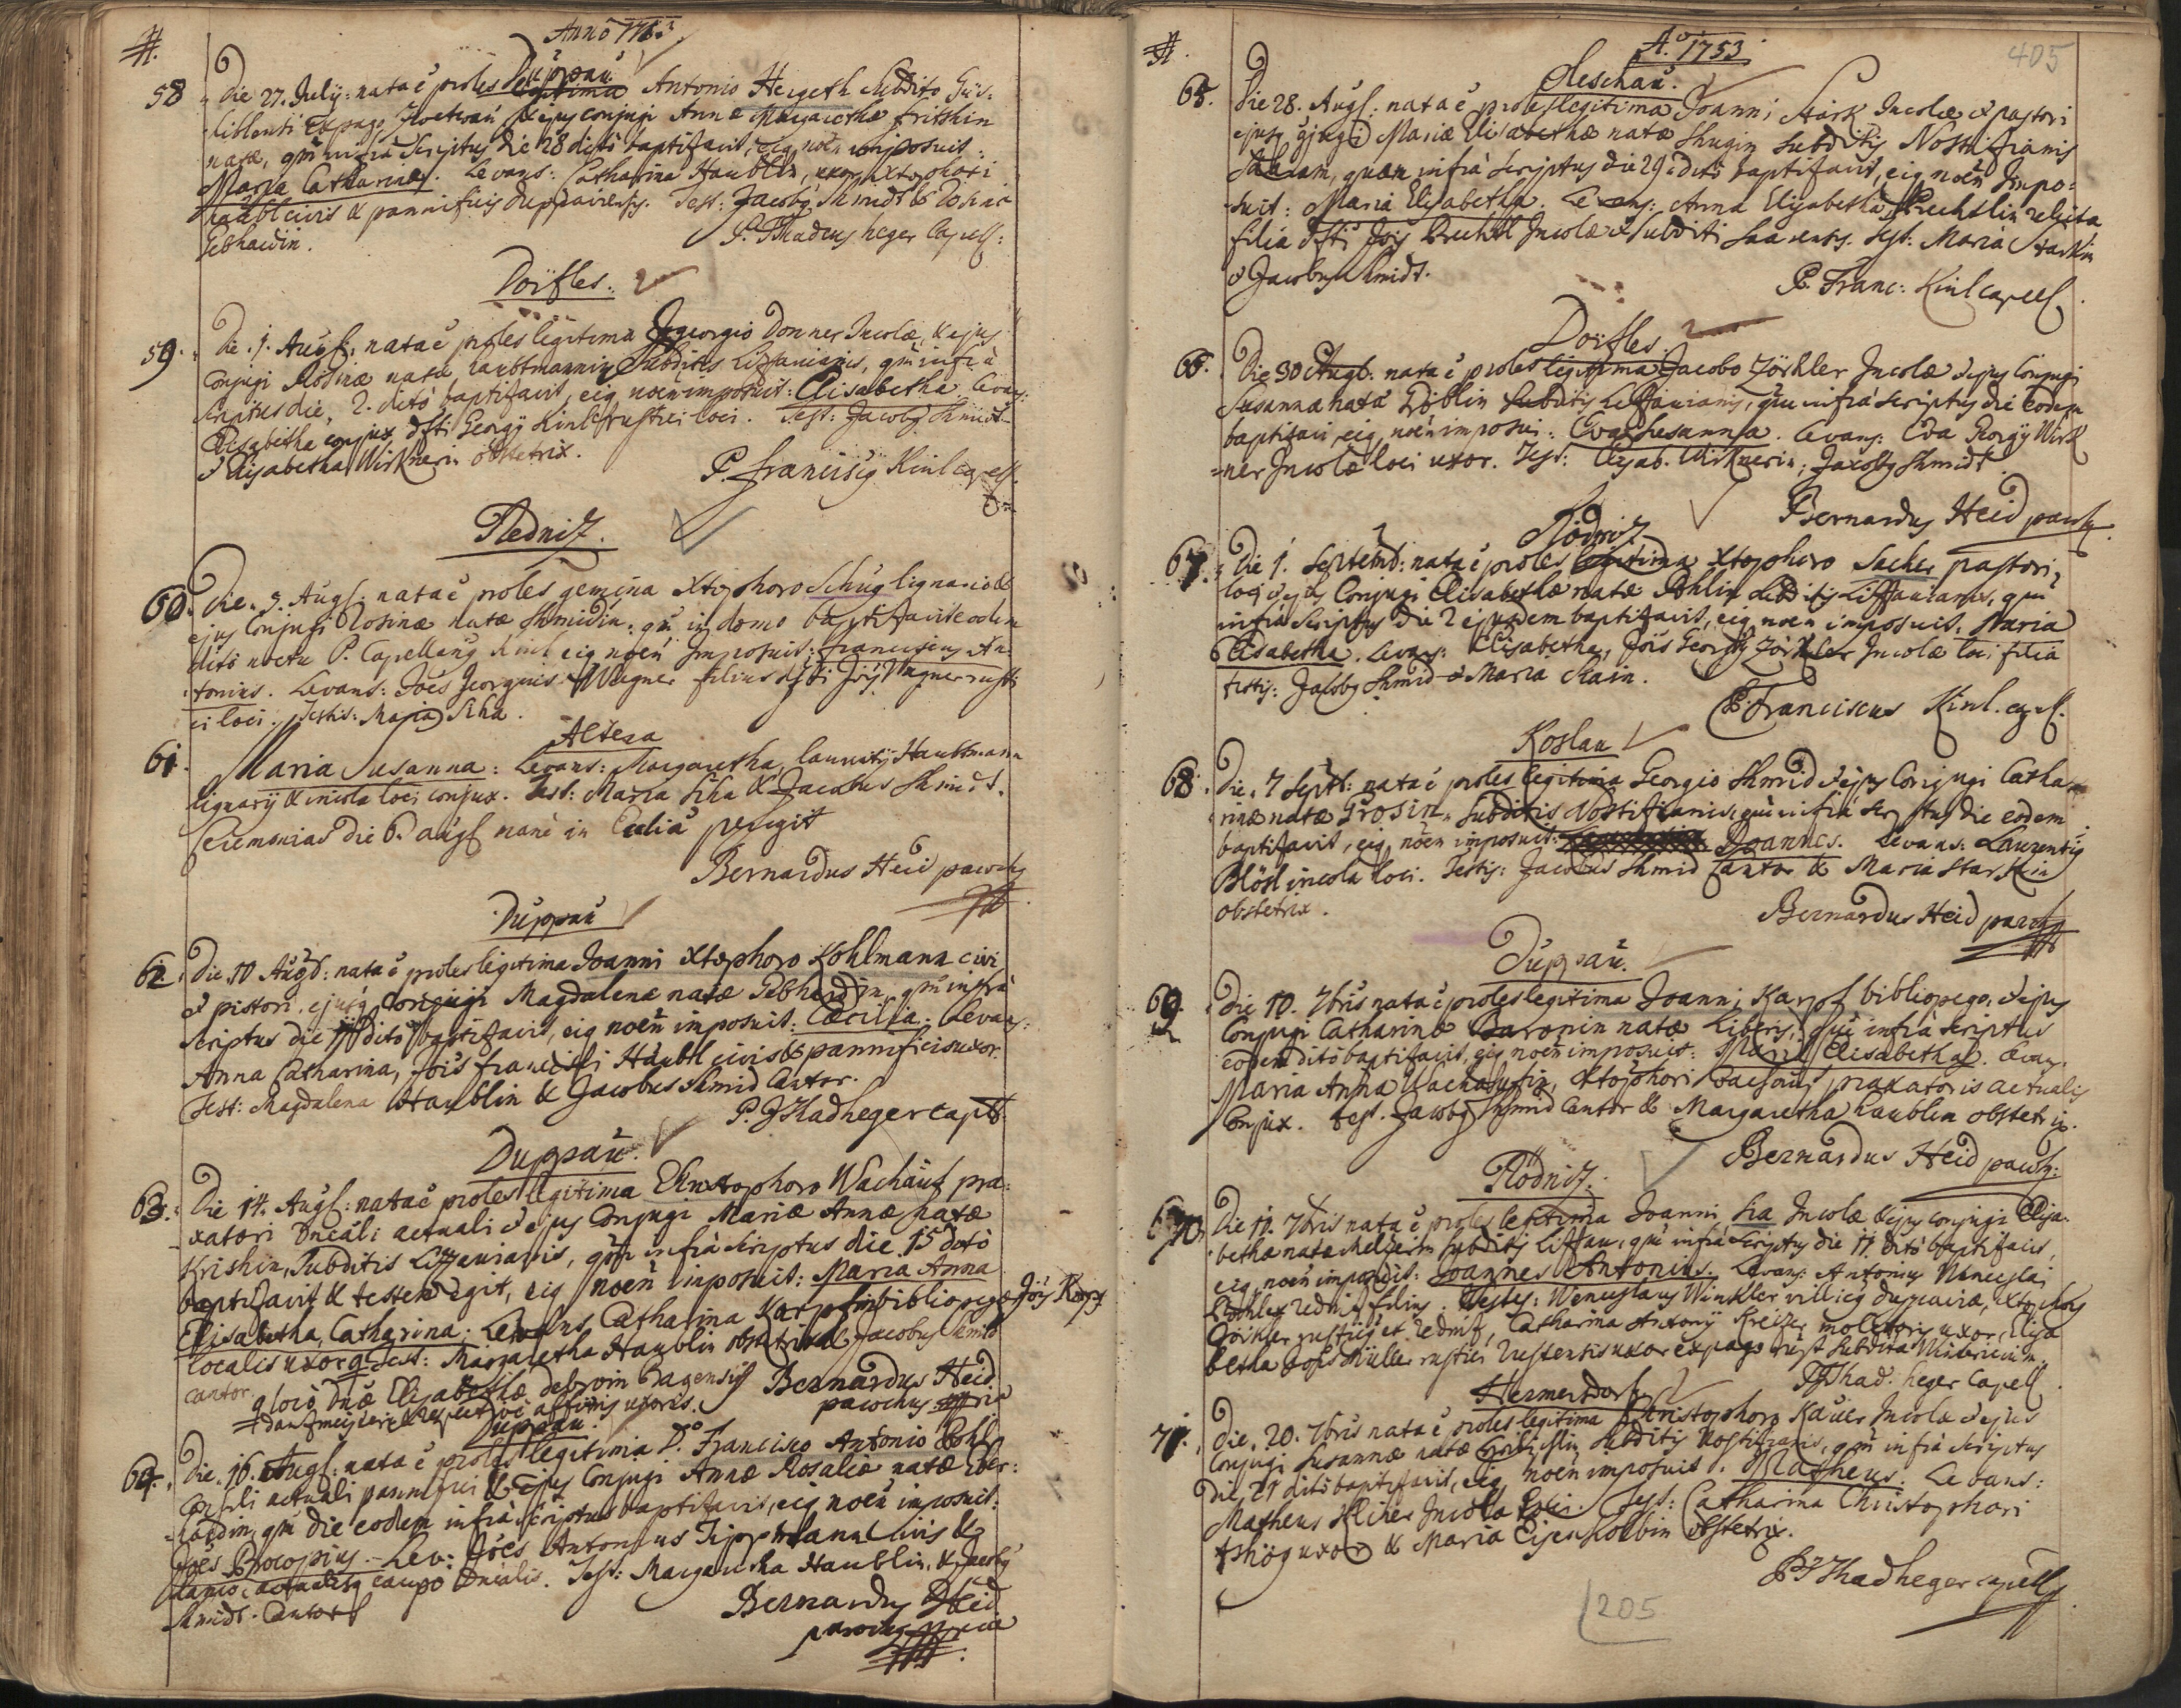 #.
Anno 1753.
Duppaŭ
58
Die 27. Julij: nata ẽ proles legitima Antonio Hergeth subdito Gies-
hiblensi ex pago & ejus conjugi Annæ Margarethæ fritshin
natæ, qm̃ infra scriptus die 28 dito baptisavit, eiq noẽn imposuit:
Maria Catharina. Levans: Catharina Haublin, uxor Xtophori
haubl civis & pannificis Duppaviensis. Test: Jacobq Shmidt & Rosina
Gebhardin.
P. Thadeus heger Capell:
Dörfles.
59.
Die 1. Augl: nata ẽ proles legitima Georgio Donner Incolæ, & ejus
Conjugi Rosinæ natæ haubtmannin Subditis Liffavianis, qm̃ infra
scriptus die 2. dito baptisavit, eiq noẽn imposuit: Elisabetha Levans:
Elisabetha conjux dfti Georgij Kinl rustici loci. Test: Jacobq Shmidt
& Elisabetha Wirknerin obstetrix.
P. Franciscq Kinl capell.
Redniz.
60.
Die 5. Augl: nata ẽ proles gemina Xtophoro Schug lignario &
ejus Conjugi Rosinæ natæ Shmidin, qm̃ in domo baptisavit eodem
dito noctu P. Capellanq Kinl eiq noẽn Imposuit: franciscus An-
tonius. Levans: Joẽs Georgius Wagner filius dfti Jois Wagner rusti-
ci loci. Testis: Maria Siha.
Altera
61.
Maria Susanna: Levans: Margaretha, laurentij Haubtmann
lignarij & incolæ loci conjux. Test: Maria Siha & Jacobus Shmidt.
Ceremonias die 6. augl mane in Ecclia peregit
Bernardus Heid parochq
Duppaŭ
62.
Die 10 Augl: nata ẽ proles legitima Joanni Xtophoro Kohlmann civi
& pistori, ejusq conjugi Magdalenæ natæ Gebhardin, qm̃ infra
scriptus die 11 dito baptisavit, eiq noẽn imposuit: Cæcilia. Levans:
Anna Catharina, Jois francisci Haubtl civis & pannificis uxor.
Test: Magdalena Haublin & Jacobus Shmid Cantor.
P. Thad heger capll.
Duppaŭ.
63.
Die 14. Augl: nata ẽ proles legitima Christophoro Wachaus pra-
xatori Dncali actuali & ejus Conjugi Mariæ Annæ natæ
Krishin, Subditis Liffavianis, qm̃ infra scriptus die 15 dito
baptisavit & testem egit, eiq noẽn imposuit: Maria Anna
Elisabetha Catharina: Levans, Catharina Karpfin bibliopegæ Jois Karpf
localis uxor. Test: Margaretha Haublin obstetrix & Jacobus Shmid
cantor.
loco Dnæ Elisabethæ
Bernardus Heid
parochus
Duppaŭ.
64.
Die 16. Augl: nata ẽ proles legitima D.o Francisco Antonio Pohl
Consuli actuali pannifici & ejus Conjugi Annæ Rosaliæ natæ Eber-
hardin, qm̃ die eodem infra scriptus baptisavit, eiq noẽn imposuit:
Joẽs Procopius. Lev: Joẽs Antonius Tippmann Civis &
actualisq caupo Dncalis. Test: Margaretha Haublin, & Jacobq
Shmidt. Cantor
Bernardus Heid
parochus
#.
A.o 1753
405
Oleschaŭ.
65.
Die 28. Augl: nata ẽ proles legitima Joanni Stark Incolæ & pastori
ejusq conjugi Mariæ Elisabethæ natæ Shugin subditis Nostitzianis
quam infra scriptus die 29 dito baptisavit, eiq noẽn Impo-
suit: Maria Elisabetha. Levans: Anna Elisabetha Brechtlin relicta
filia dfti Jois Brechtl Incolæ & subditi. Test: Maria Starkin
& Jacobus Shmidt.
P. Franc: Kinl capell.
Dörfles
66.
Die 30 Augl. nata ẽ proles legitima Jacobo Zörkler Incolæ & ejus Conjugi
Susanna nata Göblin subditis Liffavianis, qm̃ infra scriptus die eodem
baptisavi, eiq noẽn imposui: Eva Susanna. Levans: Eva Georgij Wirk-
ner Incolæ loci uxor. Test: Elisab. Wirknerin, Jacobq Shmidt.
Bernardus Heid parochq
Rödniz
67.
Die 1. Septemb: nata ẽ proles legitima Xtophoro Sacher pastori
loci & ejus Conjugi Elisabethæ natæ Pohlin subditis Liffavianis, qm̃
infra scriptus die 2 ejusdem baptisavit, eiq noẽn imposuit: Maria
Elisabetha. Levans: Elisabetha, Jois Georgij Zörkler Incolæ loci filia
testis: Jacobq Shmid & Maria Rain.
P. Franciscus Kinl. capell.
Koslau
68.
Die 7 Septb: nata ẽ proles legitima Georgio Shmid & ejus Conjugi Catha-
rinæ natæ Grosin, Subditis Nostitzianis, qm̃ infra scriptus die eodem
baptisavit, eiq noẽn imposuit: Joannes. Levans: Laurentiq
Blösl incola loci. Testis: Jacobus Shmid Cantor & Maria Starkin
obstetrix.
Bernardus Heid parochq
Duppaŭ.
69.
Die 10. 7bris nata ẽ proles legitima Joanni Karpf bibliopego, & ejus
Conjugi Catharinæ Baronin natæ Liberis, qm̃ infra scriptus
eodem dito baptisavit, eiq noẽn imposuit: Maria Elisabetha. Levans:
Maria Anna Wachausin, Xtophori Wachaus praxatoris actualis
Conjux. Test. Jacobq Shmid Cantor & Margaretha haublin obstetrix.
Bernardus Heid parochq:
Rödniz.
70.
Die 11. 7bris nata ẽ proles legitima Joanni Sia Incolæ & ejus conjugi Elisa-
betha nata Melzerin subditis Liffau, qm̃ infra scriptus die 11. dito baptisavit,
eiq noẽn imposuit: Joannes Antonius. Levans: Antonius Wenceslai
filius. Testes: Wenceslaus Winkler villicq duppaviæ, Xtophorq
Zörkler rusticq et Redniz, Catharina Antonij Kreizer molitoris uxor, Elisa-
betha Jois Müller rustici uxor ex pago
P Thad. heger Capell.
Hermersdorf
71.
Die 20. 7bris nata ẽ proles legitima Christophoro Kauer Incolæ & ejus
Conjugi Susannæ natæ subditis Nostitzianis, qm̃ infra scriptus
die 21 dito baptisavit, eiq noẽn imposuit: Matheus. Levans:
Matheus Incola loci. Test: Catharina Christophori
uxor & Maria Eisenkolbin obstetrix.
P Thad heger capells
205